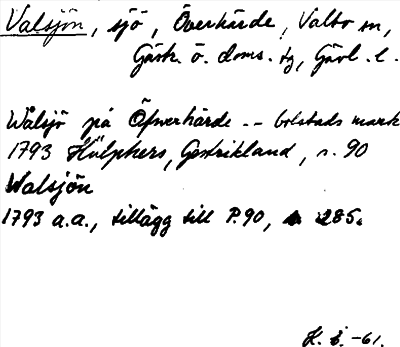 Valsjön, sjö, Överhärde, Valbo sn,
Gästr. ö. doms. tg, Gävl. l.
Walsjö på Öfwerhärde -- bolstads mark
1793 Hülphers, Gestrikland, s. 90
Walsjön
1793 a.a., tillägg till P.90, s 285.